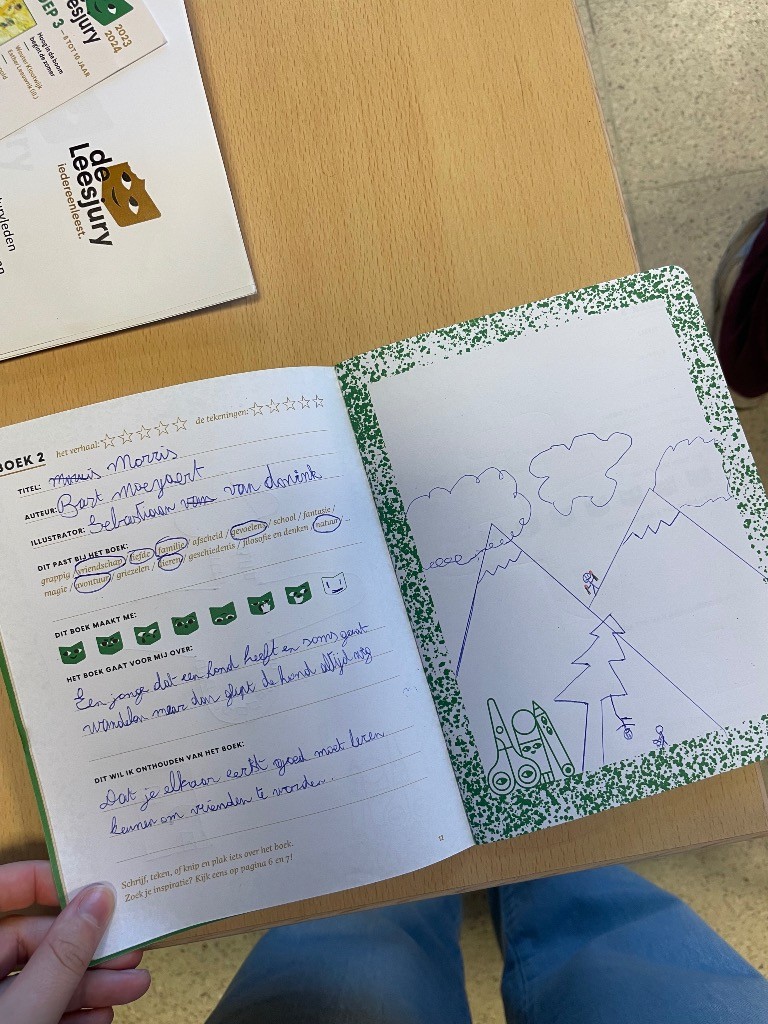 EP 3 — 8 TOT 10 JAAR
2023
2024
Hoog in de boom
begint de zomer
Wouter Klootwijk
de
Leesjury
iedereenleest.
BOEK 2 het verhaal: de tekeningen:
TITEL: Morris
AUTEUR: Bart Moeyaert
ILLUSTRATOR: Sebastiaan van van donink
DIT PAST BIJ HET BOEK:
grappig / vriendschap / liefde / familie / afscheid / gevoelens / school / fantasie /
magie / avontuur / griezelen / dieren / geschiedenis / filosofie en denken / natuur
DIT BOEK MAAKT ME:
HET BOEK GAAT VOOR MIJ OVER:
Een jonge dat een hond heeft en soms gaat
wandelen maar dan glipt de hond altijd weg
DIT WIL IK ONTHOUDEN VAN HET BOEK:
Dat je elkaar eerst goed moet leren
kennen om vrienden te worden.
Schrijf, teken, of knip en plak iets over het boek.
Zoek je inspiratie? Kijk eens op pagina 6 en 7!
12